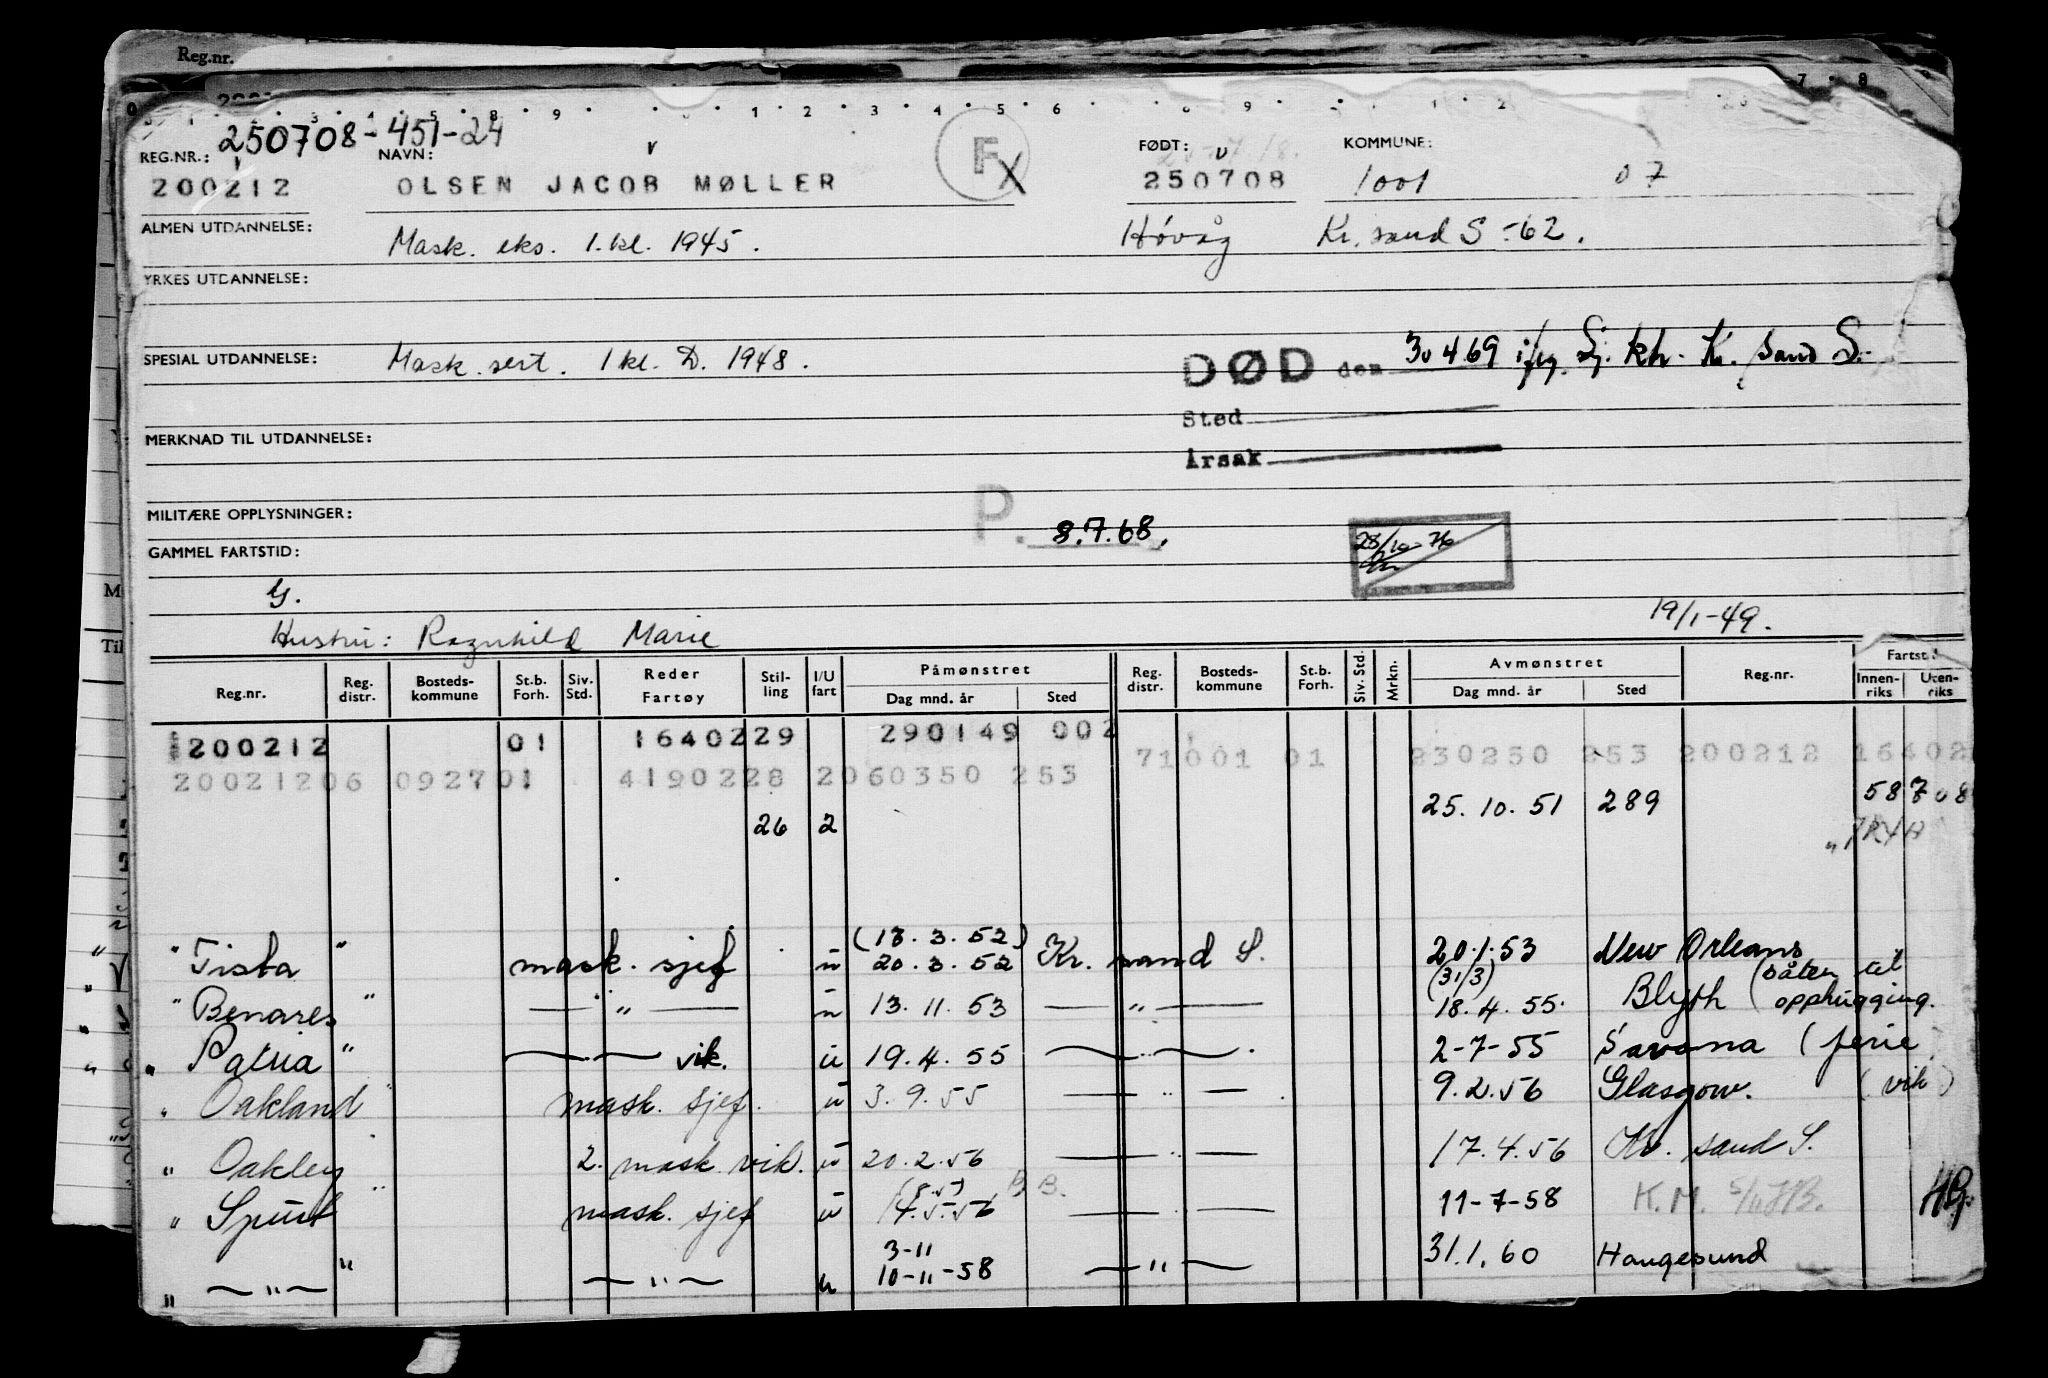 Reg.nr.
250708-451-24
REG.NR.: NAVN: FØDT: KOMMUNE:
200212 OLSEN JACOB MØLLER F 250708 1001 07
ALMEN UTDANNELSE: Mask. eks. 1.kl. 1945. Høvåg Kr. sand S -62.
YRKES UTDANNELSE:
SPESIAL UTDANNELSE: Mask. sert. 1 kl. D. 1948. DØD den 30 4 69 iflg. Sj. kh. Kr. sand S.
Sted
Årsak
MERKNAD TIL UTDANNELSE:
MILITÆRE OPPLYSNINGER: P. 8.7.68.
GAMMEL FARTSTID: 28/10-76
G.
19/1-49.
Hustru: Ragnhild Marie
Reg.nr. Reg. distr. Bosteds- kommune St.b. Forh. Siv. Std. Reder Fartøy Stil- ling I/U fart Påmønstret Dag mnd. år Sted Reg. distr. Bosteds- kommune St.b. Forh. Siv. Std. Mrkn. Avmønstret Dag mnd. år Sted Reg.nr. Innen- riks Uten- riks
200212 01 1640229 290149 002 71001 01 230250 253 200212 16402
20021206 092701 4190228 2060350 253
25.10.51 289 58
26 2
" Tista " mask. sjef u (13.3.52) 20.3.52 Kr. sand S. 20.1.53 New Orleans
" Benares " — " — u 13.11.53 — " — (31/3) 18.4.55. Blyth (båten til opphugging.
" Patria " — " — vik. u 19.4.55 — " — . 2-7-55 Savona (ferie
" Oakland " mask. sjef. u 3.9.55 — " — . 9.2.56 Glasgow. (vik)
" Oakley " 2. mask. vik. u 20.2.56 — " — 17.4.56 Kr. sand S.
" Spurt mask. sjef u 14.5.56 B.B. — " — 11-7-58 K.M. HB.
" — " — " — " — u 3-11 10-11-58 — " — 31.1.60 Haugesund